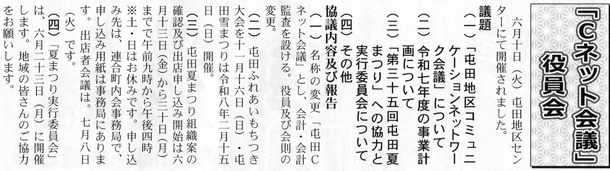 「Cネット会議」
役員会
六月十日（火）屯田地区セン
ターにて開催されました。
議題
（一）「屯田地区コミュニ
ケーションネットワー
ク会議」について
（二）令和七年度の事業計
画について
（三）「第三十五回屯田夏
まつり」への協力と
実行委員会について
（四）その他
協議内容及び報告
（一）名称の変更「屯田C
ネット会議」とし、会計・会計
監査を設ける。役員及び会則の
変更。
（二）屯田ふれあいもちつき
大会を十一月十六日（日）・屯
田雪まつり令和八年二月十五
日（日）開催。
（三）屯田夏まつり組織案の
確認及び出店申し込み開始は六
月十三日（金）から三十日（月）
までで午前九時から午後四時
※土・日はお休みです。申し込
み先は、連合町内会事務局で、
申し込み用紙は事務局にありま
す。出店者会議は。七月八日
（火）です。
（四）「夏まつり実行委員会」
は、六月二十三日（月）に開催
します。地域の皆さんのご協力
をお願いします。